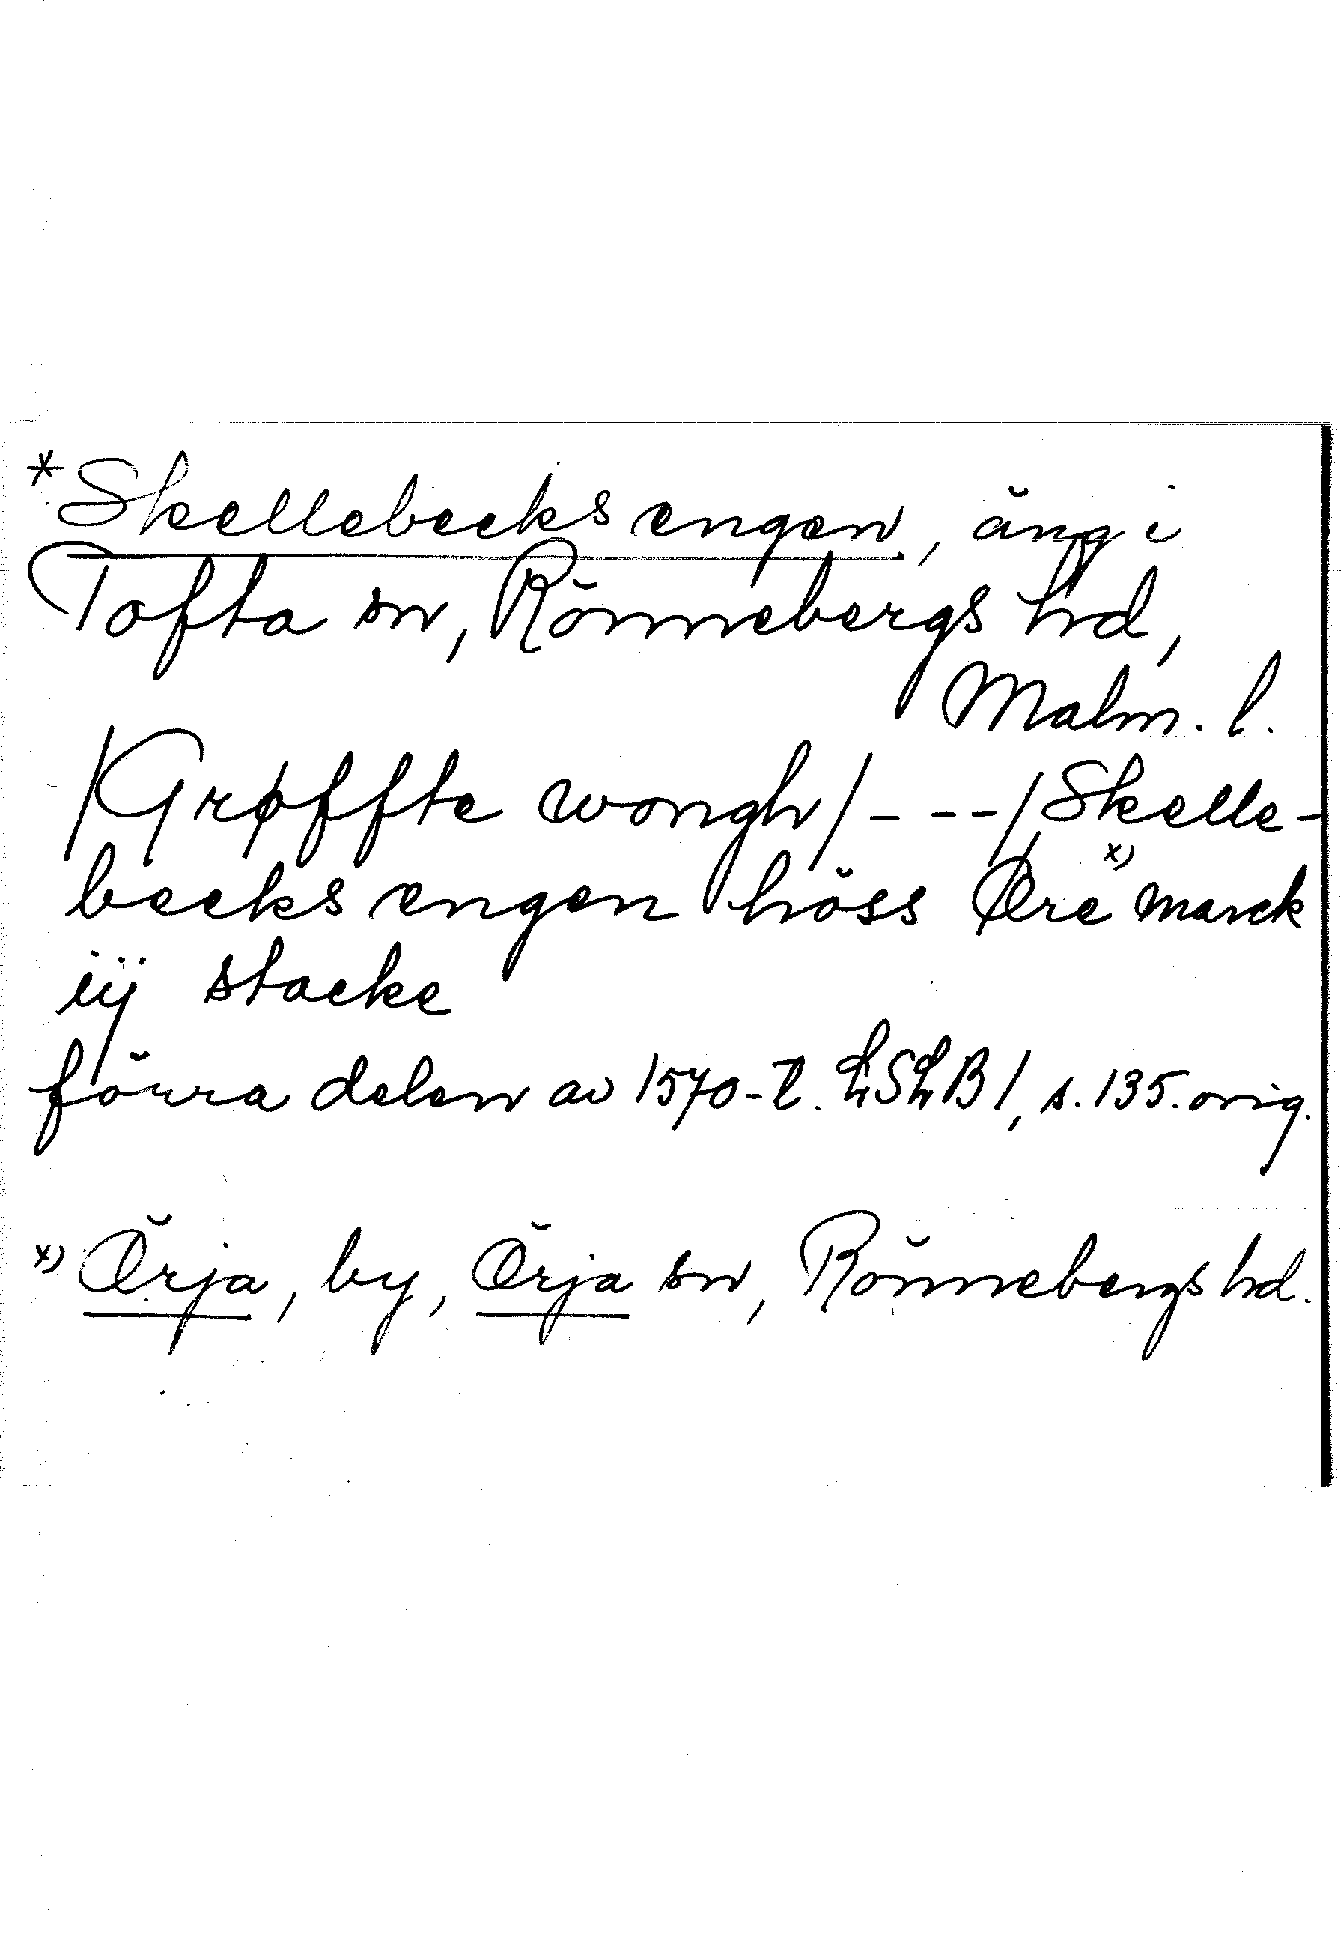 *Skellebecks engen, äng i
Tofta sn, Rönnebergs hd,
Malm. l.
/Grøffte wongh/ - - - / Skelle-
becks engen höss Øre x) marck
iij stacke
förra delen av 1570-t. LSLB 1, s. 135. orig.
x) Örja, by, Örja sn, Rönnebergs hd.